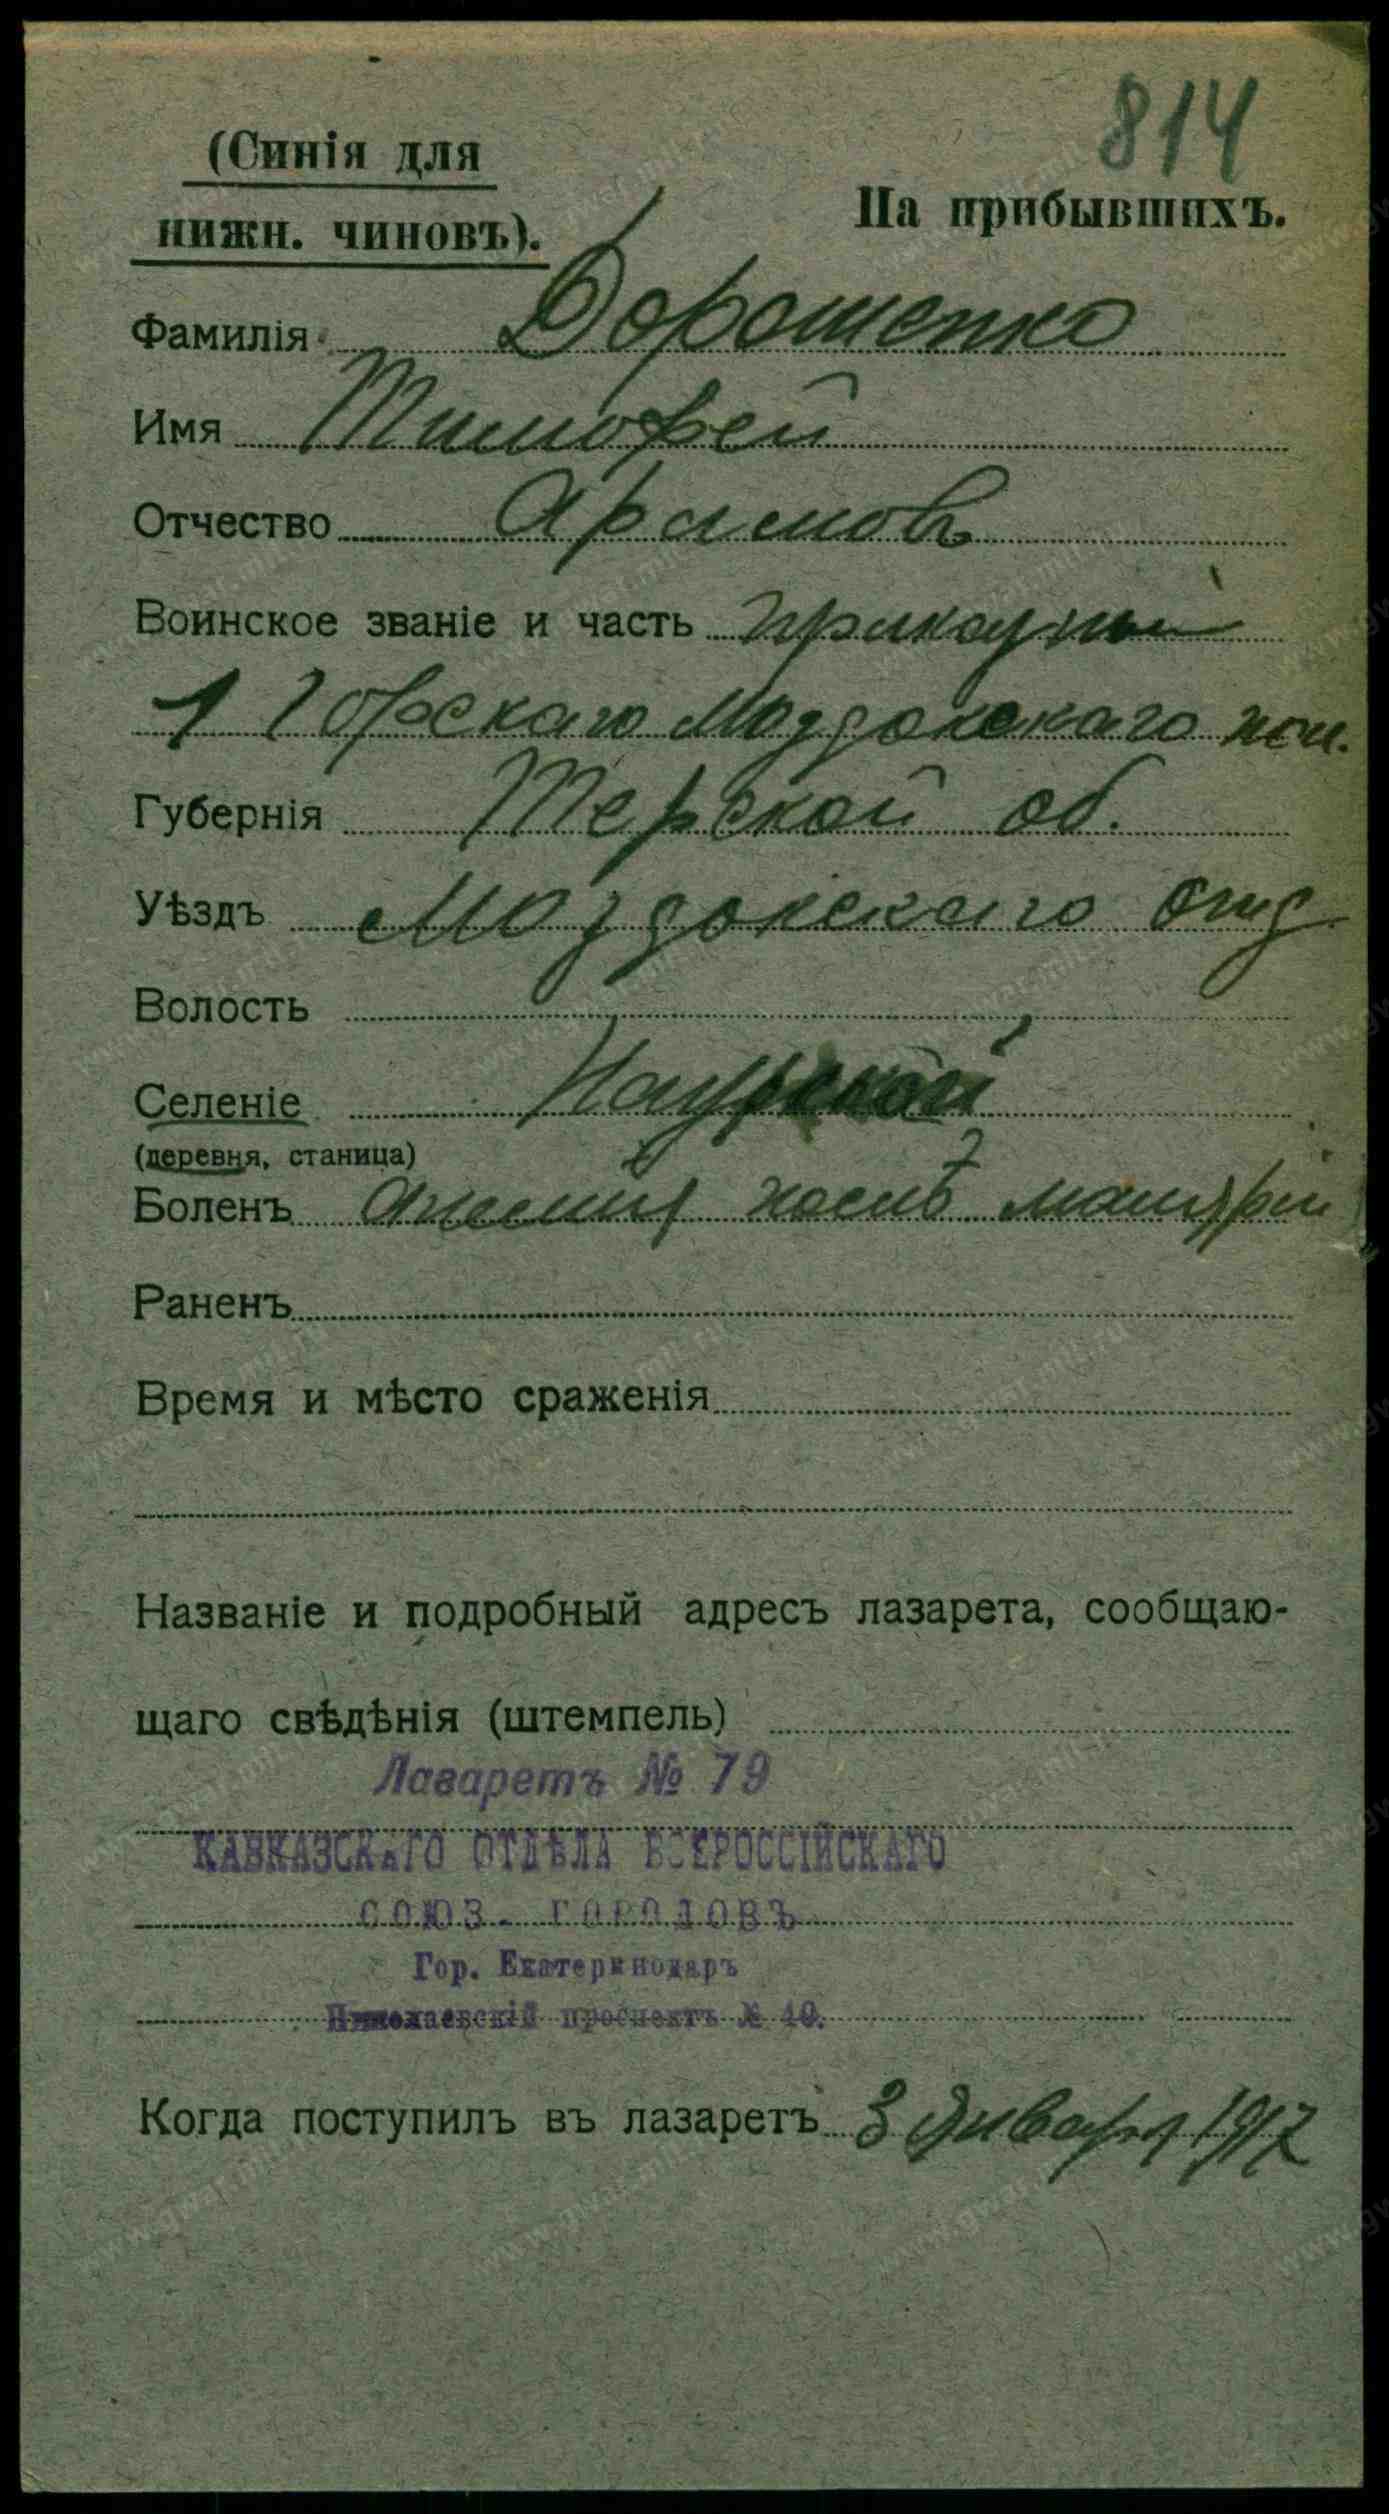 814
(Синія для
нижн. чиновъ).
На прибывшихъ.
Фамилія Дорошенко
Имя Тимофей
Отчество
Воинское званіе и часть приказный
1 Горскаго Моздокскаго пол.
Губернія Терской об.
Уѣздъ Моздокскаго отд
Волость
Селеніе Наурской
(деревня, станица)
Боленъ анемія послѣ маляріи
Раненъ
Время и мѣсто сраженія
Названіе и подробный адресъ лазарета, сообщаю-
щаго свѣдѣнія (штемпель)
Лазаретъ № 79
КАВКАЗСКАГО ОТДѢЛА ВСЕРОССІЙСКАГО
СОЮЗ. ГОРОДОВЪ
Гор. Екатеринодаръ
Николаевскій проспектъ № 40.
Когда поступилъ въ лазаретъ 3 Января 1917